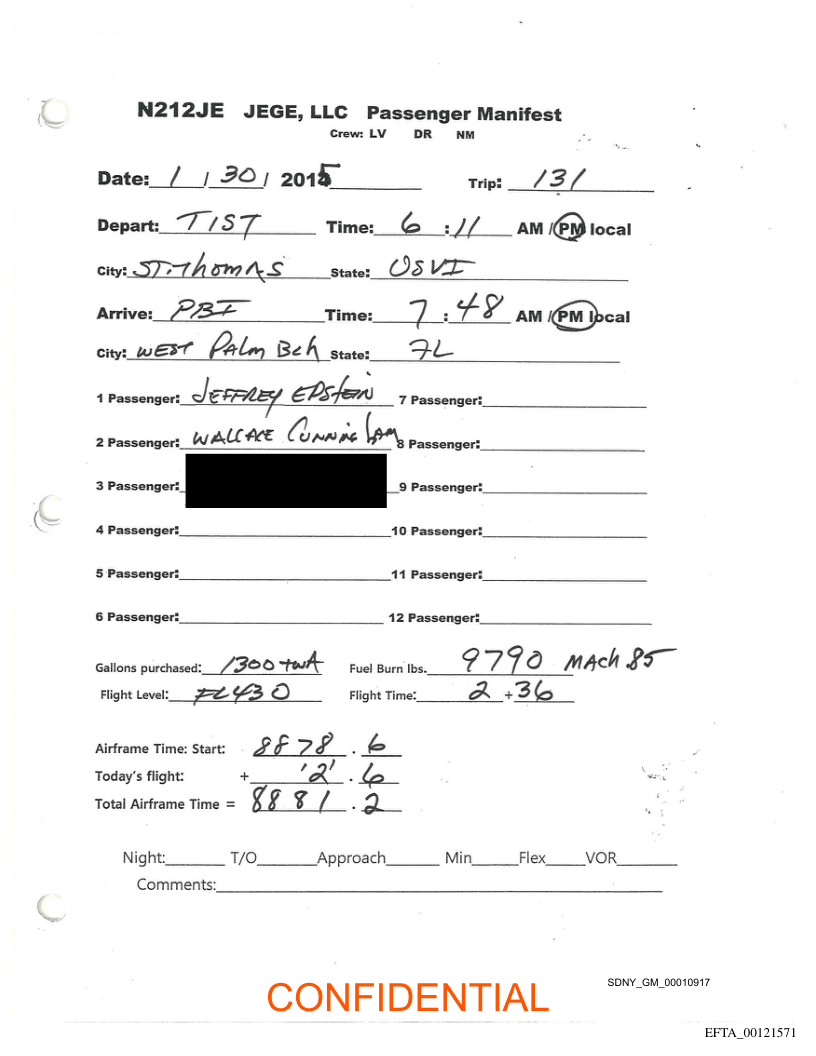 N212JE JEGE, LLC Passenger Manifest
Crew: LV DR NM
Date: 1 / 30 / 2015 Trip: 131
Depart: TIST Time: 6 : 11 AM / PM local
City: ST. Thomas State: USVI
Arrive: PBI Time: 7 : 48 AM / PM local
City: WEST PAlm Bch State: FL
1 Passenger: JEFFREY EPStEIN 7 Passenger:
2 Passenger: WALLACE CUNNINGHAM 8 Passenger:
3 Passenger: 9 Passenger:
4 Passenger: 10 Passenger:
5 Passenger: 11 Passenger:
6 Passenger: 12 Passenger:
Gallons purchased: 1300 Fuel Burn lbs. 9790 MAch .85
Flight Level: FL430 Flight Time: 2 + 36
Airframe Time: Start: 8878 . 6
Today's flight: + '2' . 6
Total Airframe Time = 8881 . 2
Night: T/O Approach Min Flex VOR
Comments:
SDNY_GM_00010917
CONFIDENTIAL
EFTA_00121571